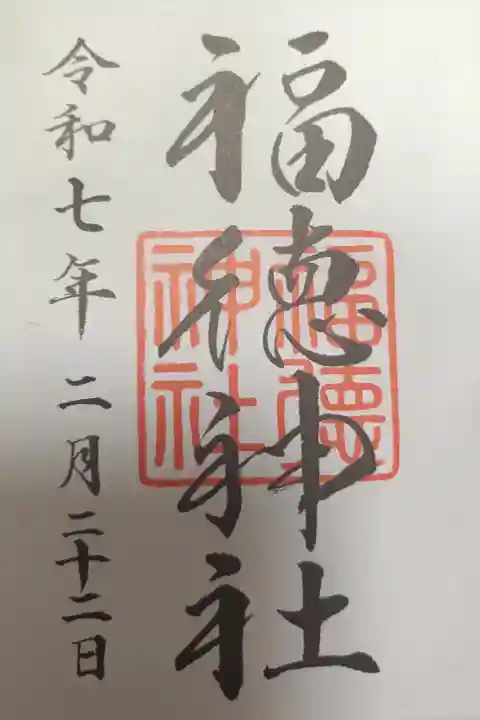 福徳神社
福徳
神社
令和七年二月二十二日